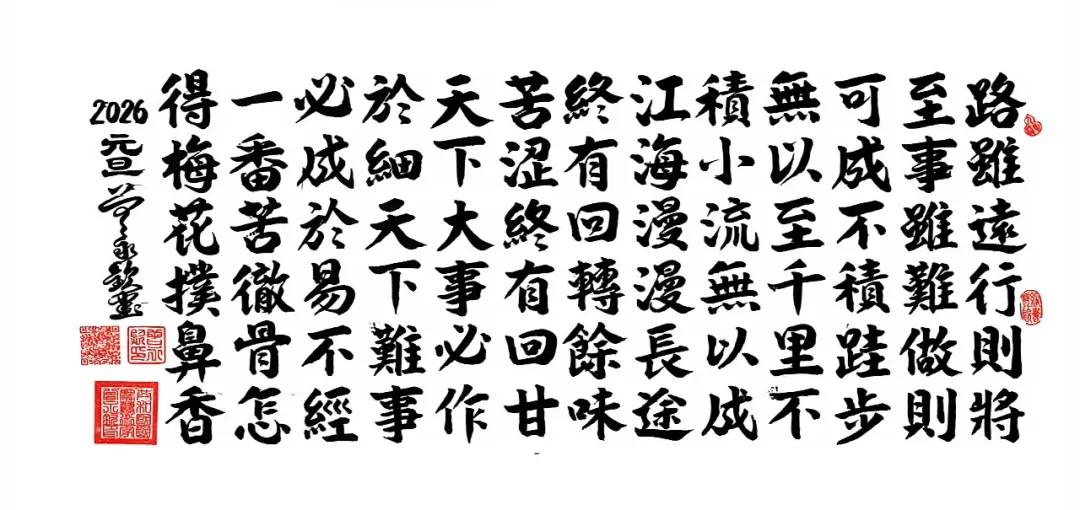 路雖遠行則將
至事雖難做則
可成不積跬步
無以至千里不
積小流無以成
江海漫漫長途
終有回轉餘味
苦涩終有回甘
天下大事必作
於細天下難事
必成於易不經
一番苦徹骨怎
得梅花撲鼻香
2026
元旦